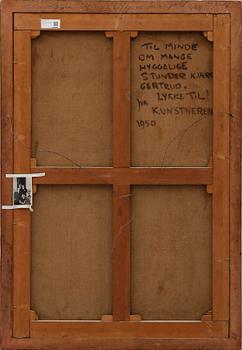 TIL MINDE
OM MANGE
HYGGELIGE
STUNDER KJÆRE
GERTRUD.
LYKKE TIL!
FRA
KUNSTNEREN
1950